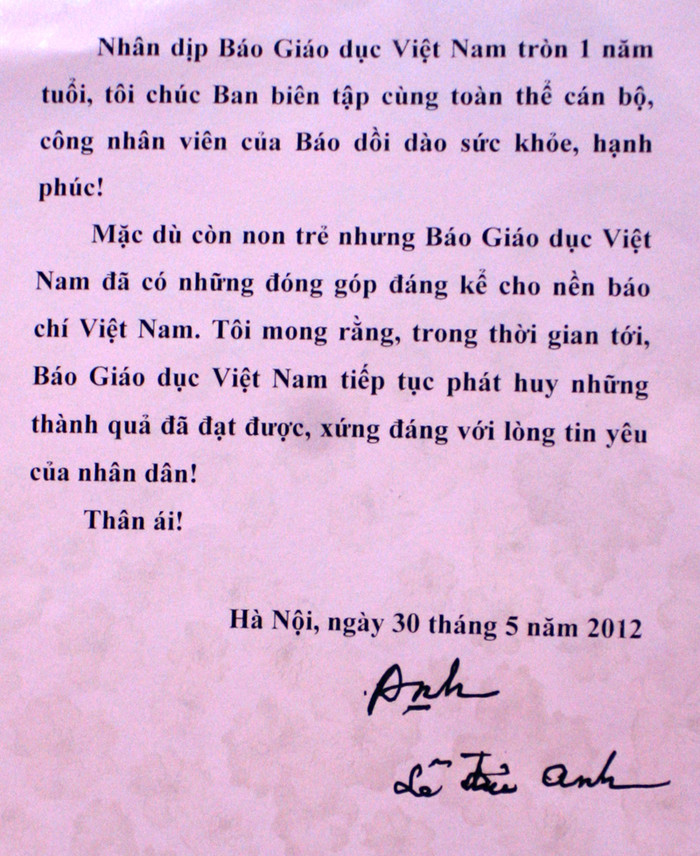 Nhân dịp Báo Giáo dục Việt Nam tròn 1 năm
tuổi, tôi chúc Ban biên tập cùng toàn thể cán bộ,
công nhân viên của Báo dồi dào sức khỏe, hạnh
phúc!
Mặc dù còn non trẻ nhưng Báo Giáo dục Việt
Nam đã có những đóng góp đáng kể cho nền báo
chí Việt Nam. Tôi mong rằng, trong thời gian tới,
Báo Giáo dục Việt Nam tiếp tục phát huy những
thành quả đã đạt được, xứng đáng với lòng tin yêu
của nhân dân!
Thân ái!
Hà Nội, ngày 30 tháng 5 năm 2012
Anh
Lê Đức Anh